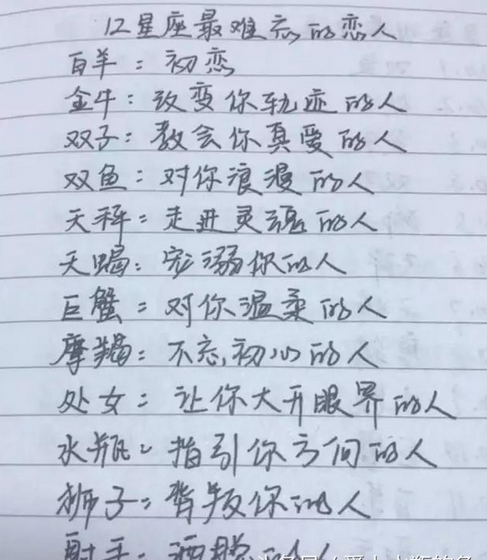 12星座最难忘的恋人
白羊：初恋
金牛：改变你轨迹的人
双子：教会你真爱的人
双鱼：对你浪漫的人
天秤：走进灵魂的人
天蝎：宠溺你的人
巨蟹：对你温柔的人
摩羯：不忘初心的人
处女：让你大开眼界的人
水瓶：指引你方向的人
狮子：背叛你的人
射手：洒脱的人